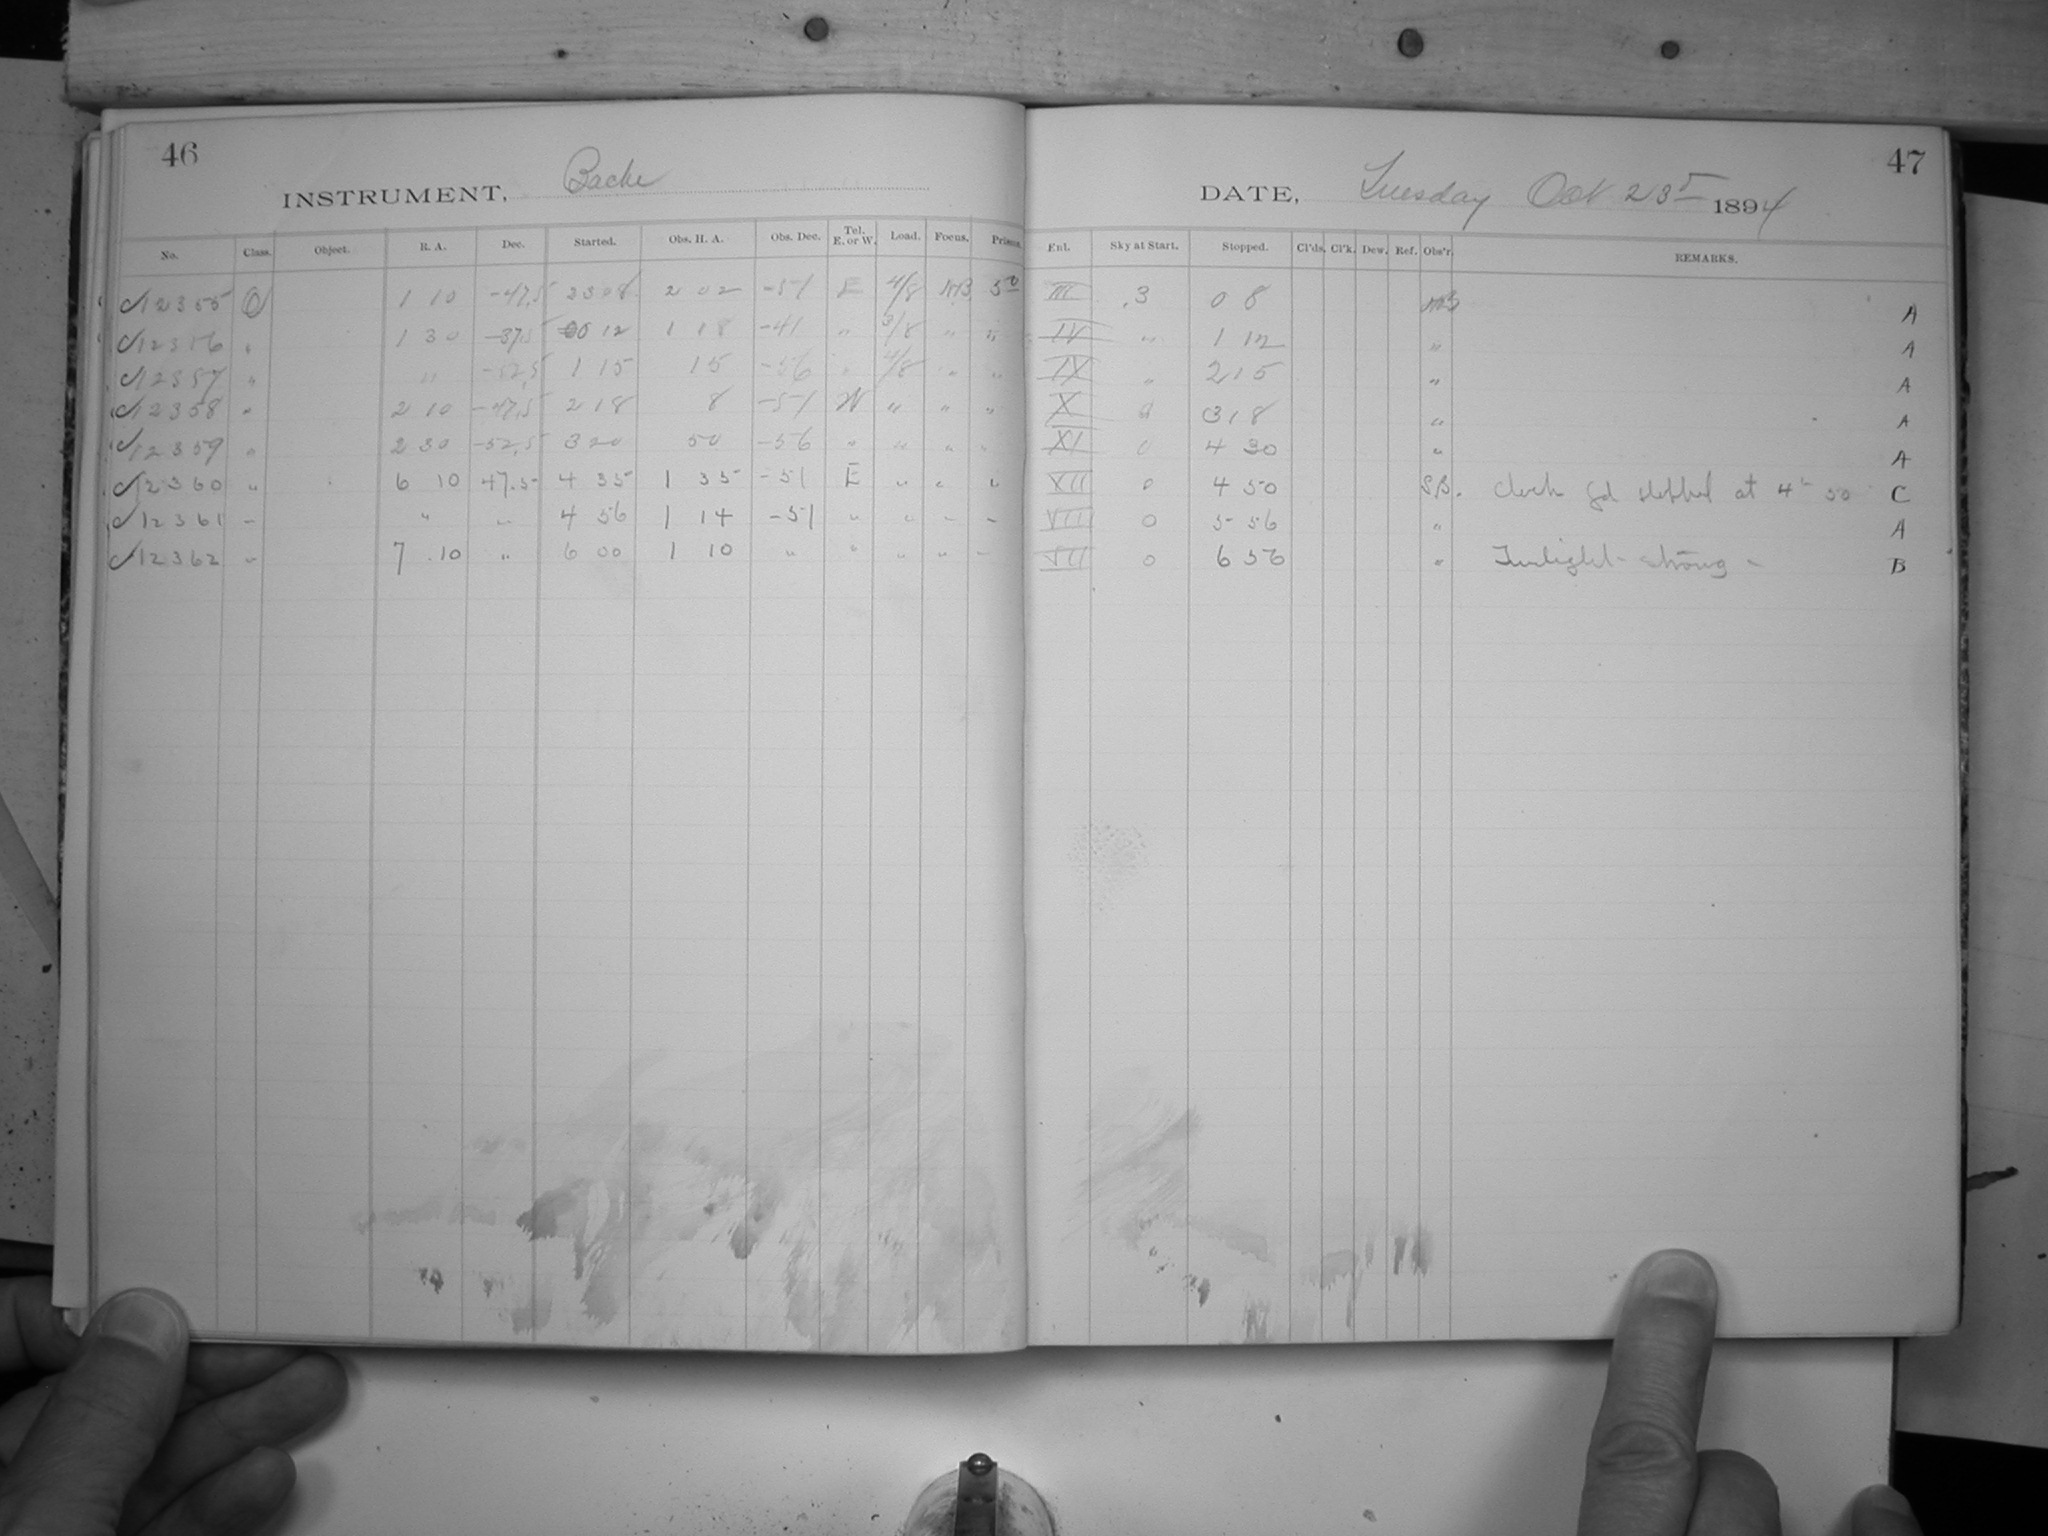 46
INSTRUMENT, Bache
No. Class. Object. R. A. Dec. Started. Obs. H. A. Obs. Dec. Tel. E. or W. Load. Focus. Prisms.
12355 O 1 10 -47,5 23 08 2 02 -51 E 4/8 50
12356 " 1 30 -37,5 00 12 1 18 -41 " 3/8 " "
12357 " " -52,5 1 15 15 -56 " 4/8 " "
12358 " 2 10 -47,5 2 18 8 -51 W " " "
12359 " 2 30 -52,5 3 20 50 -56 " " " "
12360 " 6 10 47.5 4 35 1 35 -51 E " " "
12361 " " " 4 56 1 14 -51 " " " "
12362 " 7 10 " 6 00 1 10 " " " " "
47
DATE, Tuesday Oct 23 1894
Ent. Sky at Start. Stopped. Cl'ds. Cl'k. Dew. Ref. Obs'r. REMARKS.
III .3 0 8 A
IV " 1 12 " A
IX " 2 15 " A
X 3 18 " A
XI 0 4 30 " A
XII 0 4 50 S.B. Clock stopped at 4h 50 C
VIII 0 5 56 " A
VII 0 6 56 " Twilight strong - B